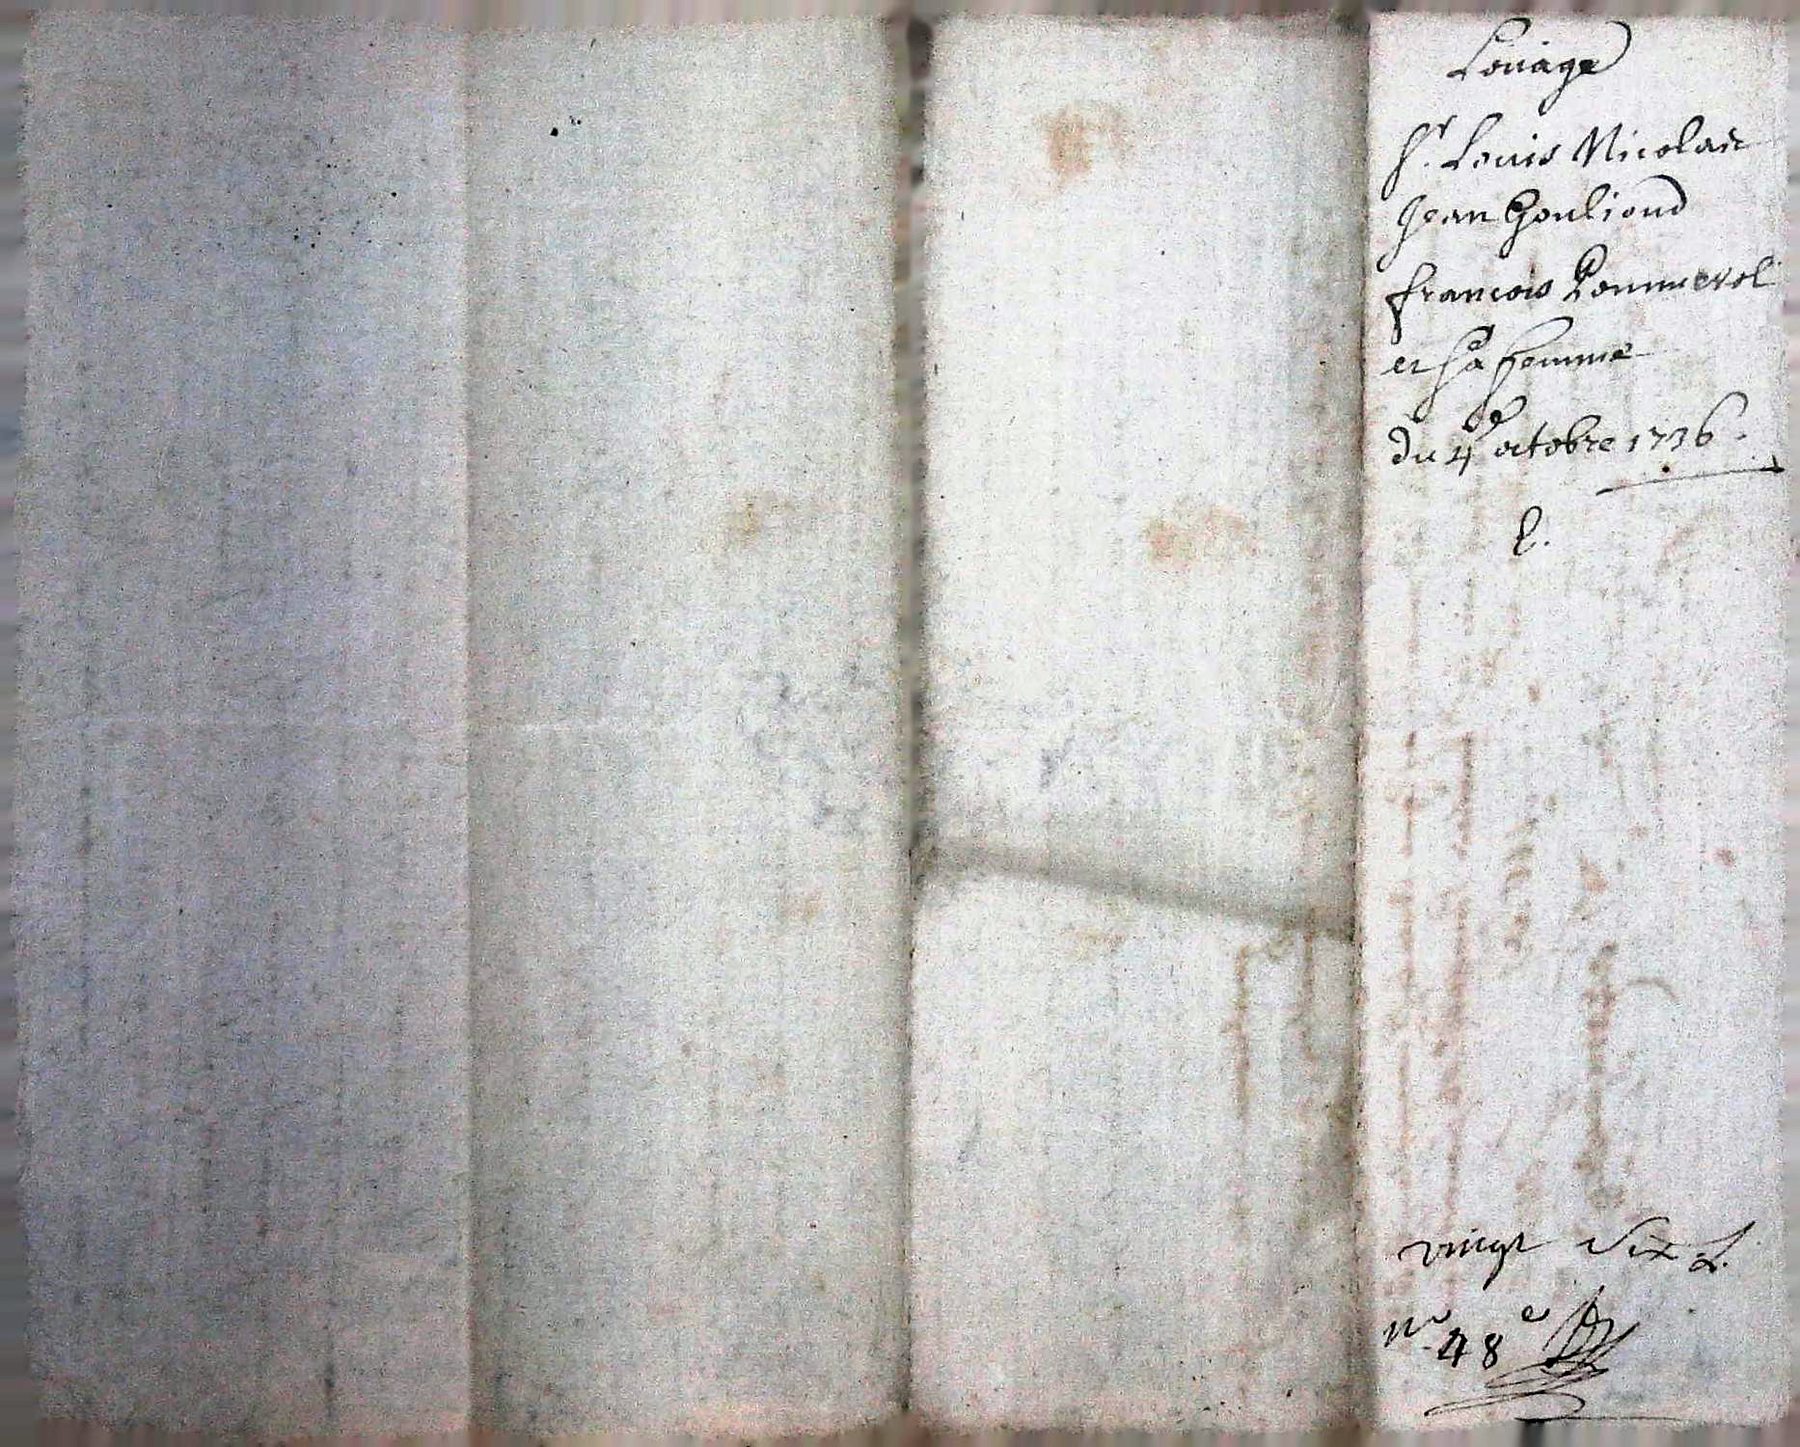 Louage
Sr. Louis Nicolas
Jean Gouliond
francois Pommerol
et Sa femme
du 4e octobre 1736.
E.
vingt Six L.
no. 48e